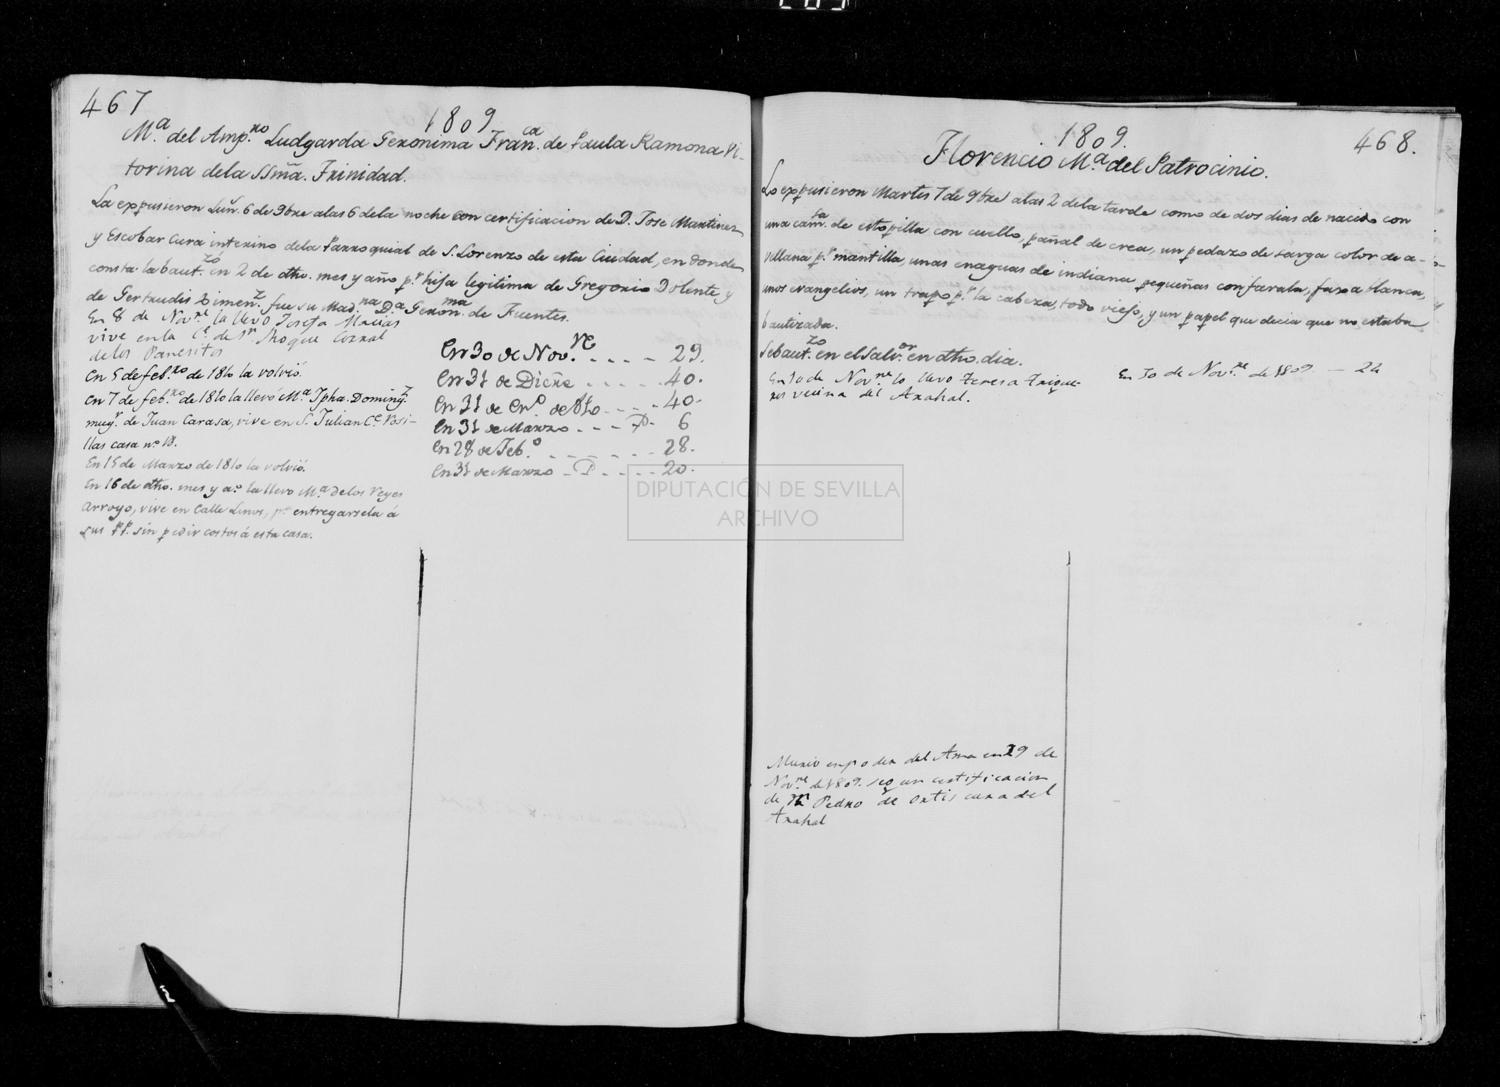 467
1809
Mª. del Amp.ro Ludgarda Geronima Fran.ca de Paula Ramona Vi-
torina dela SSma. Trinidad.
La exppusieron Lun. 6 de 9bre alas 6 dela noche con certificacion de D. Jose Martinez
y Escobar Cura interino dela Parroquial de S. Lorenzo de esta Ciudad, en donde
consta la baut.zo en 2 de dho. mes y año p.r hija legitima de Gregorio Dolente y
de Gertrudis Ximen.z fue su Mad.na D.a Geron.ma de Fuentes.
En 8 de Nov.re la llevo Josefa Macias
vive en la C.e de S.n Roque Corral
delos Panesitos
En 5 de feb.ro de 1810 la volvió.
En 7 de feb.ro de 1810 la llevó M.a Jpha. Doming.z
mug.r de Juan Carasa, vive en S. Julian C.e Posi-
llas casa nº 18.
En 15 de Marzo de 1810 la volvió.
En 16 de dho. mes y aº. la llevo M.a delos Reyes
Arroyo, vive en Calle Linos, p.a entregarsela á
sus PP. sin pedir costos á esta casa.
En 30 de Nov.re .... 29.
En 31 de Dicre .... 40.
En 31 de En.º de 810 .... 40.
En 31 de Marzo ... P. 6
En 28 de Feb.º ...... 28.
En 31 de Marzo . P .... 20.
DIPUTACIÓN DE SEVILLA
ARCHIVO
468.
1809.
Florencio Mª del Patrocinio.
Lo exppusieron Martes 7 de 9bre alas 2 dela tarde como de dos dias de nacido con
una cam.sa de estopilla con cuello, pañal de crea, un pedazo de sarga color de a-
vellana p.r mantilla, unas enaguas de indiana pequeñas con farala, faxa blanca,
unos evangelios, un trapo p.r la cabeza, todo viejo, y un papel que decia que no estaba
bautizada.
Se baut.zo en el Salv.or en dho. dia.
En 10 de Nov.re lo llevo Teresa
vecina del Arahal.
En 30 de Nov.re de 1809 — 22
Murió en poder del Ama en 29 de
Nov.re de 1809. segun certificacion
de Pedro de Ortis cura del
Arahal